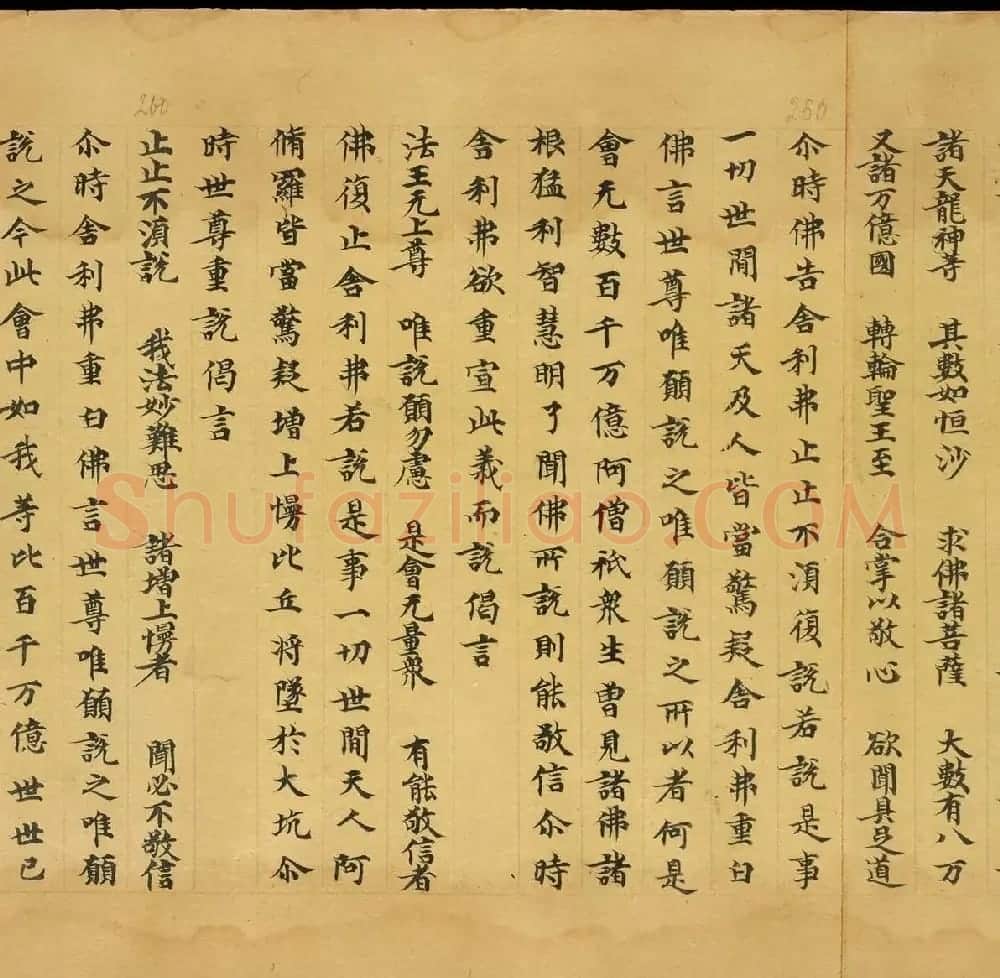 諸天龍神等 其數如恒沙 求佛諸菩薩 大數有八万
又諸万億國 轉輪聖王至 合掌以敬心 欲聞具足道
尒時佛告舍利弗止止不湏復説若説是事
一切世間諸天及人皆當驚疑舍利弗重白
佛言世尊唯願説之唯願説之所以者何是
會无數百千万億阿僧祇衆生曽見諸佛諸
根猛利智慧明了聞佛所説則能敬信尒時
舍利弗欲重宣此義而説偈言
法王无上尊 唯説願勿慮 是會无量衆 有能敬信者
佛復止舍利弗若説是事一切世間天人阿
脩羅皆當驚疑増上慢比丘將墜於大坑尒
時世尊重説偈言
止止不湏説 我法妙難思 諸増上慢者 聞必不敬信
尒時舍利弗重白佛言世尊唯願説之唯願
説之今此會中如我等比百千万億世世已
260
260
Shufaziliao.COM